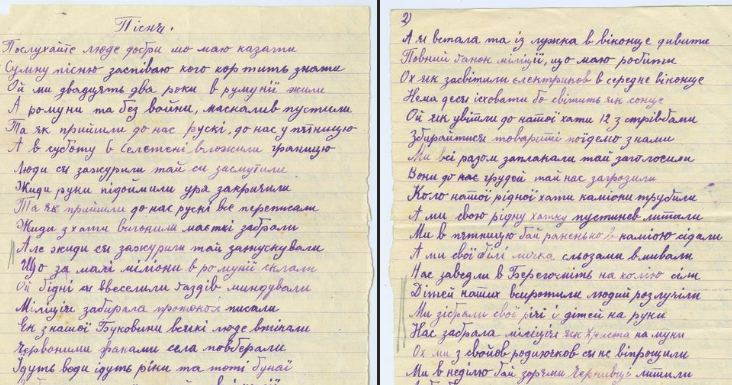 Пісня.
Послухайте люде добри шо маю казати
Сумну пісню заспіваю кого кортить знати
Ой ми двадцять два роки в румунії жили
А ромуни та без войни, маскалив пустили
Та як прийшли до нас рускі, до нас у пятницю
А в суботу в Селетені вложили границю
Люди сы зажурили тай сы засмутили
Жиди руки підоймили ура закричали
Та як прийшли до нас рускі все переписали
Жиди з хати вигонили маєткі забрали
Але жиди сы зажурили тай затускували
Що за малі міліони в ромунії склали
Ой бідні сы ввеселили газдів
Міліція забирала протокол писали
Ек з нашої Буковини всєкі люде втікали
Червоними фанами села повберали
Ідуть води ідуть ріки та тоті бунаї
2)
А я встала та із лужка в віконце дивити
Повний банок міліції, що маю робити
Ох як засвітили єлектриков в середнє віконце
Нема десы їсховати бо світить як сонце
Ой як увійшли до нашої хати 12 з стрівбами
Збирайтися товариші поїдемо з нами
Ми всі разом заплакали тай заголосили
Вони до нас грудей тай нас загрозили
Коло нашої рідної хати каміони трубили
А ми свою рідну хатку пустинев лишали
Ми в пятницю бай раненько в каміою сідали
А ми свої білі личка сльозами вмивали
Нас завезли в Берегометь на колію сіли
Дітей наших всиротили людий розлучили
Ми зібрали свої річі й дітей на руки
Нас забрала міліція як Христа на муки
Ох ми з своїов родиночков сы не випрошили
Ми в неділю бай зорями Чернивці лишили